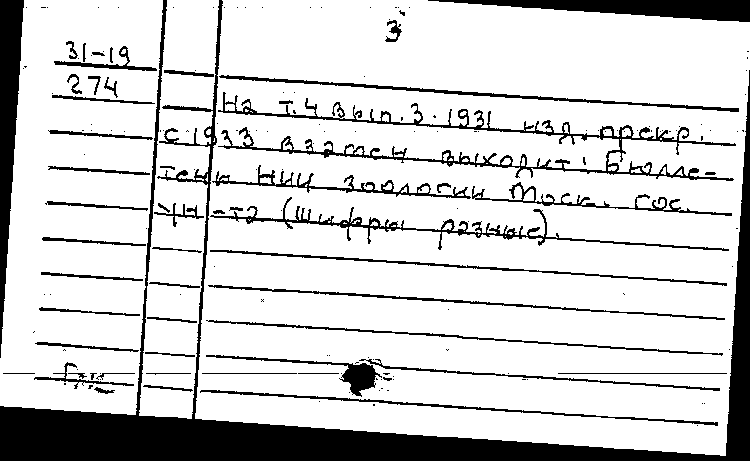 3
31-19
274
На т.4 вып.3. 1931 изд. прекр.
С 1933 взамен выходит: Бюлле-
тень НИИ зоологии Моск. гос.
ун-та (шифры разные).